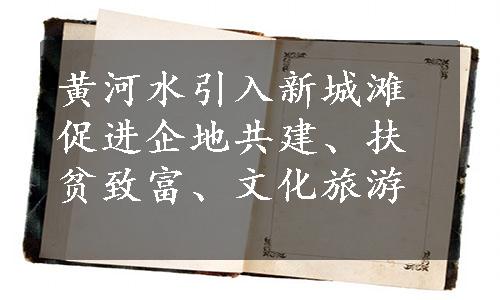 黄河水引入新城滩
促进企地共建、扶
贫致富、文化旅游